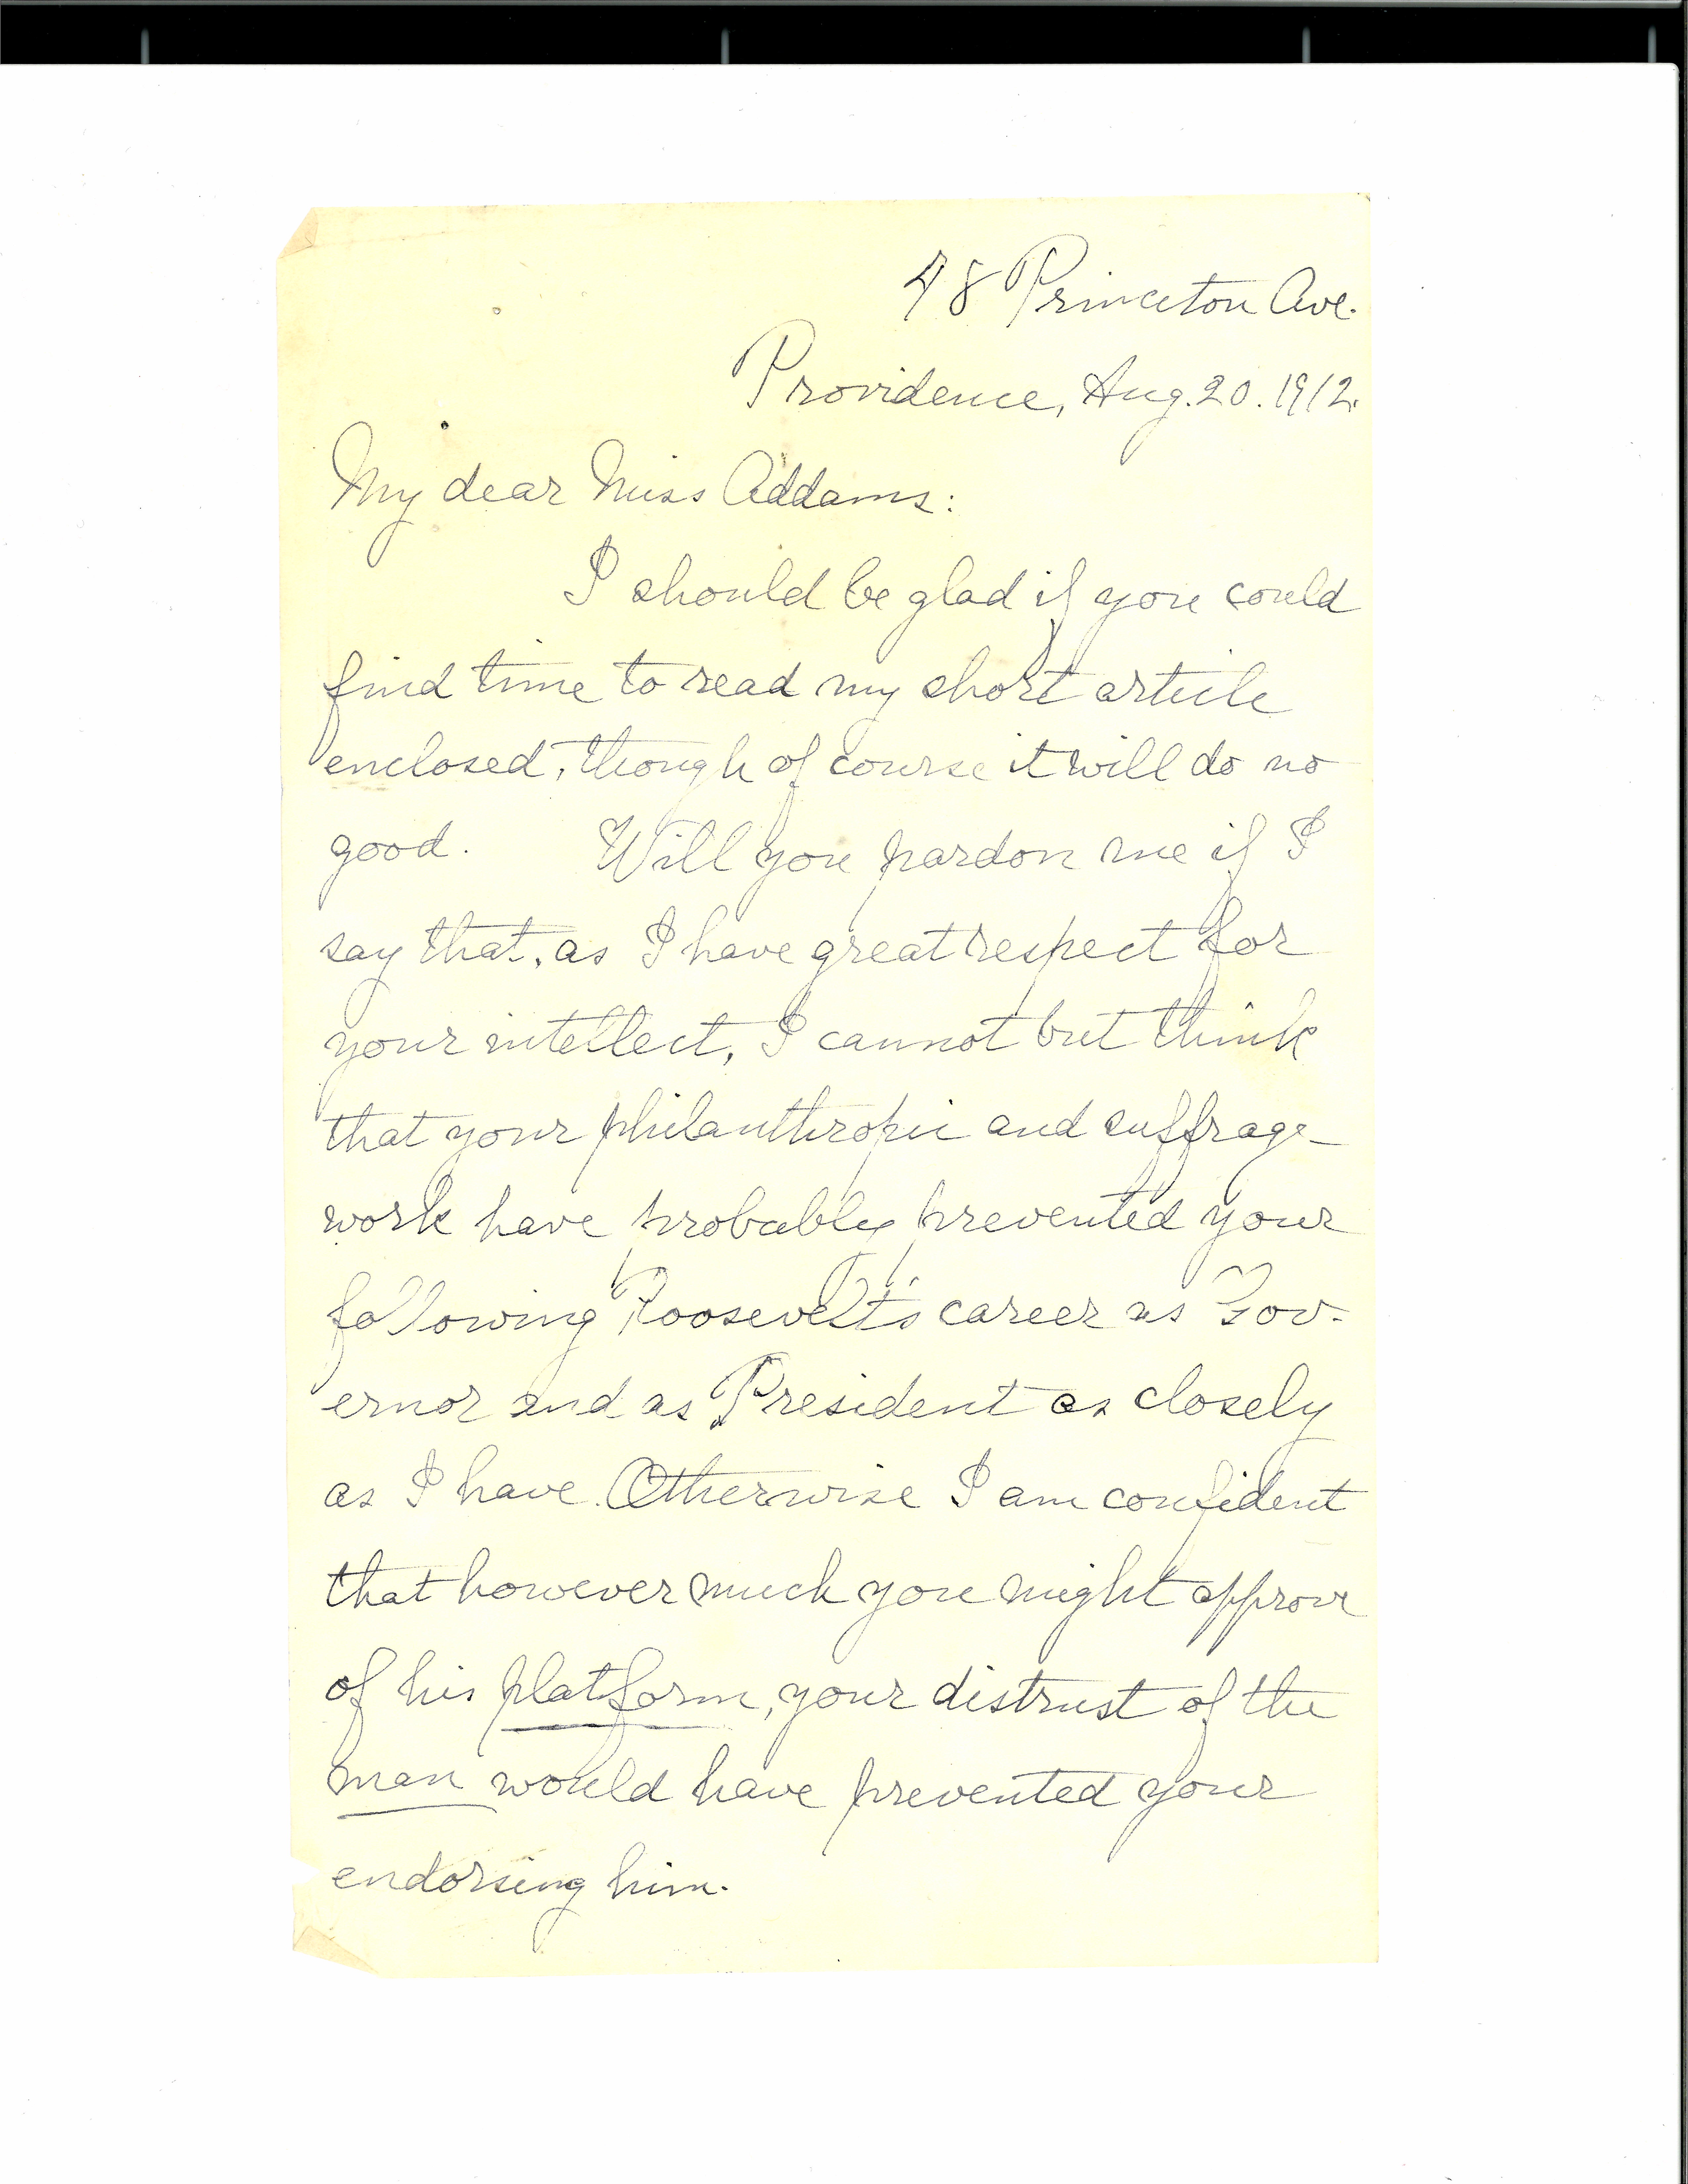 48 Princeton Ave.
Providence, Aug. 20. 1912.
My dear Miss Addams:
I should be glad if you could
find time to read my short article
enclosed, though of course it will do no
good. Will you pardon me if I
say that, as I have great respect for
your intellect, I cannot but think
that your philanthropic and suffrage-
work have probably prevented your
following Roosevelt's career as Gov-
ernor and as President as closely
as I have. Otherwise I am confident
that however much you might approve
of his platform, your distrust of the
man would have prevented your
endorsing him.